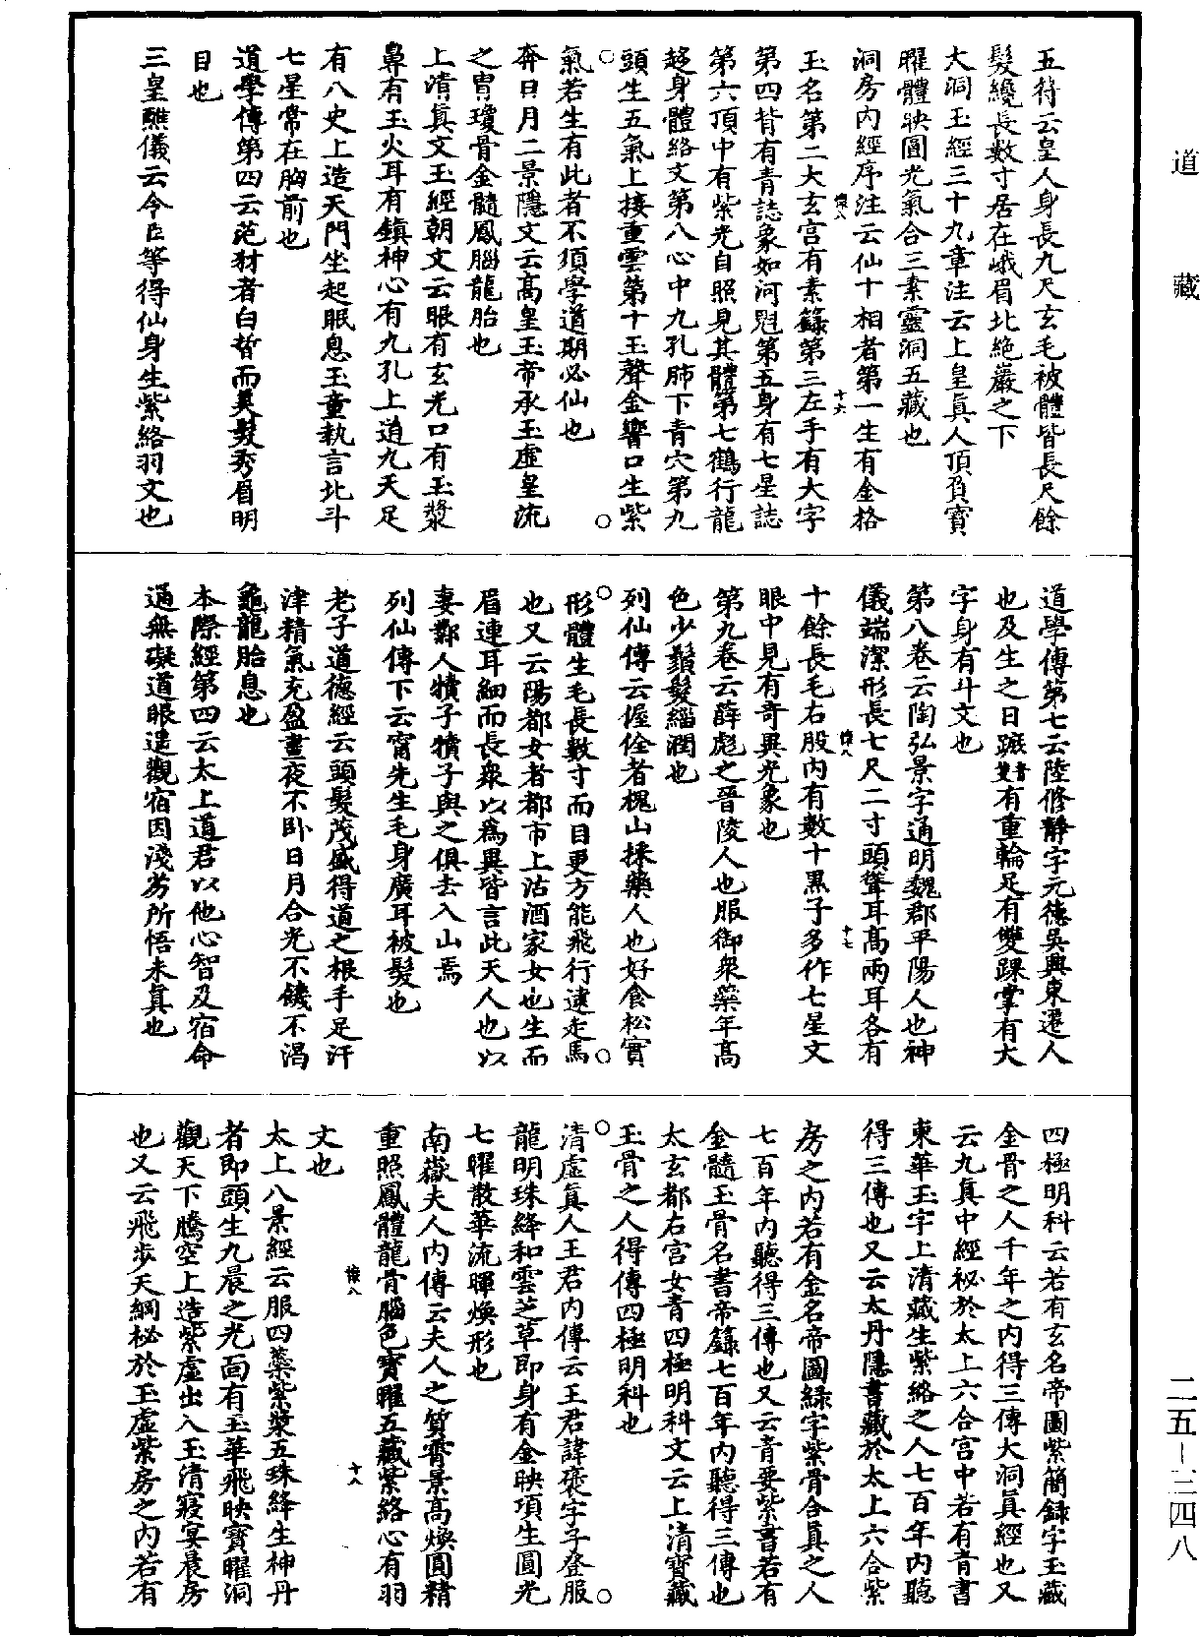 道藏
五符云皇人身長九尺玄毛被體皆長尺餘
髮纔長數寸居在峨眉北絶巖之下
大洞玉經三十九章注云上皇真人頂負寶
曜體映圓光氣合三素靈洞五藏也
洞房內經序注云仙十相者第一生有金格
玉名第二大玄宫有素籙第三左手有大字
懷八 十六
第四背有青誌象如河魁第五身有七星誌
第六頂中有紫光自照見其體第七鶴行龍
趍身體絡文第八心中九孔肺下青穴第九
頭生五氣上接重雲第十玉聲金響口生紫
氣若生有此者不須學道期必仙也
奔日月二景隱文云高皇玉帝承玉虛皇流
之胄瓊骨金髓鳳腦龍胎也
上清真文玉經朝文云眼有玄光口有玉漿
鼻有玉火耳有鎮神心有九孔上造九天足
有八史上造天門坐起眠息玉童執言北斗
七星常在胸前也
道學傳第四云范豺者白皙而美髮秀眉明
目也
三皇醮儀云今臣等得仙身生紫絡羽文也
道學傳第七云陸修靜字元德吳興東遷人
也及生之日蹠音隻有重輪足有雙踝掌有大
字身有斗文也
第八卷云陶弘景字通明魏郡平陽人也神
儀端潔形長七尺二寸頭聳耳高兩耳各有
十餘長毛右股內有數十黑子多作七星文
懷八 十七
眼中見有奇異光象也
第九卷云薛彪之晉陵人也服御衆藥年高
色少鬚髮緇潤也
列仙傳云偓佺者槐山採藥人也好食松實
形體生毛長數寸而目更方能飛行逮走馬
也又云陽都女者都市上沽酒家女也生而
眉連耳細而長衆以爲異皆言此天人也以
妻鄰人犢子犢子與之俱去入山焉
列仙傳下云甯先生毛身廣耳被髮也
老子道德經云頭髮茂盛得道之根手足汗
津精氣充盈晝夜不卧日月合光不饑不渴
龜龍胎息也
本際經第四云太上道君以他心智及宿命
通無礙道眼遥觀宿因淺劣所悟未真也
四極明科云若有玄名帝圖紫簡録字玉藏
金骨之人千年之內得三傳大洞真經也又
云九真中經祕於太上六合宫中若有青書
東華玉字上清藏生紫絡之人七百年內聽
得三傳也又云太丹隱書藏於太上六合紫
房之內若有金名帝圖緑字紫骨合真之人
七百年內聽得三傳也又云青要紫書若有
金髓玉骨名書帝籙七百年內聽得三傳也
太玄都右宫女青四極明科文云上清寶藏
玉骨之人得傳四極明科也
清虛真人王君內傳云王君諱褒字子登服
龍明珠絳和雲芝草即身有金映項生圓光
七曜散華流暉煥形也
南嶽夫人內傳云夫人之質霄景高煥圓精
重照鳳體龍骨腦色寶曜五藏紫絡心有羽
懷八 十八
文也
太上八景經云服四藥紫漿五珠絳生神丹
者即頭生九晨之光面有玉華飛映寶曜洞
觀天下騰空上造紫虛出入玉清寢宴晨房
也又云飛步天綱祕於玉虛紫房之內若有
二五–三四八